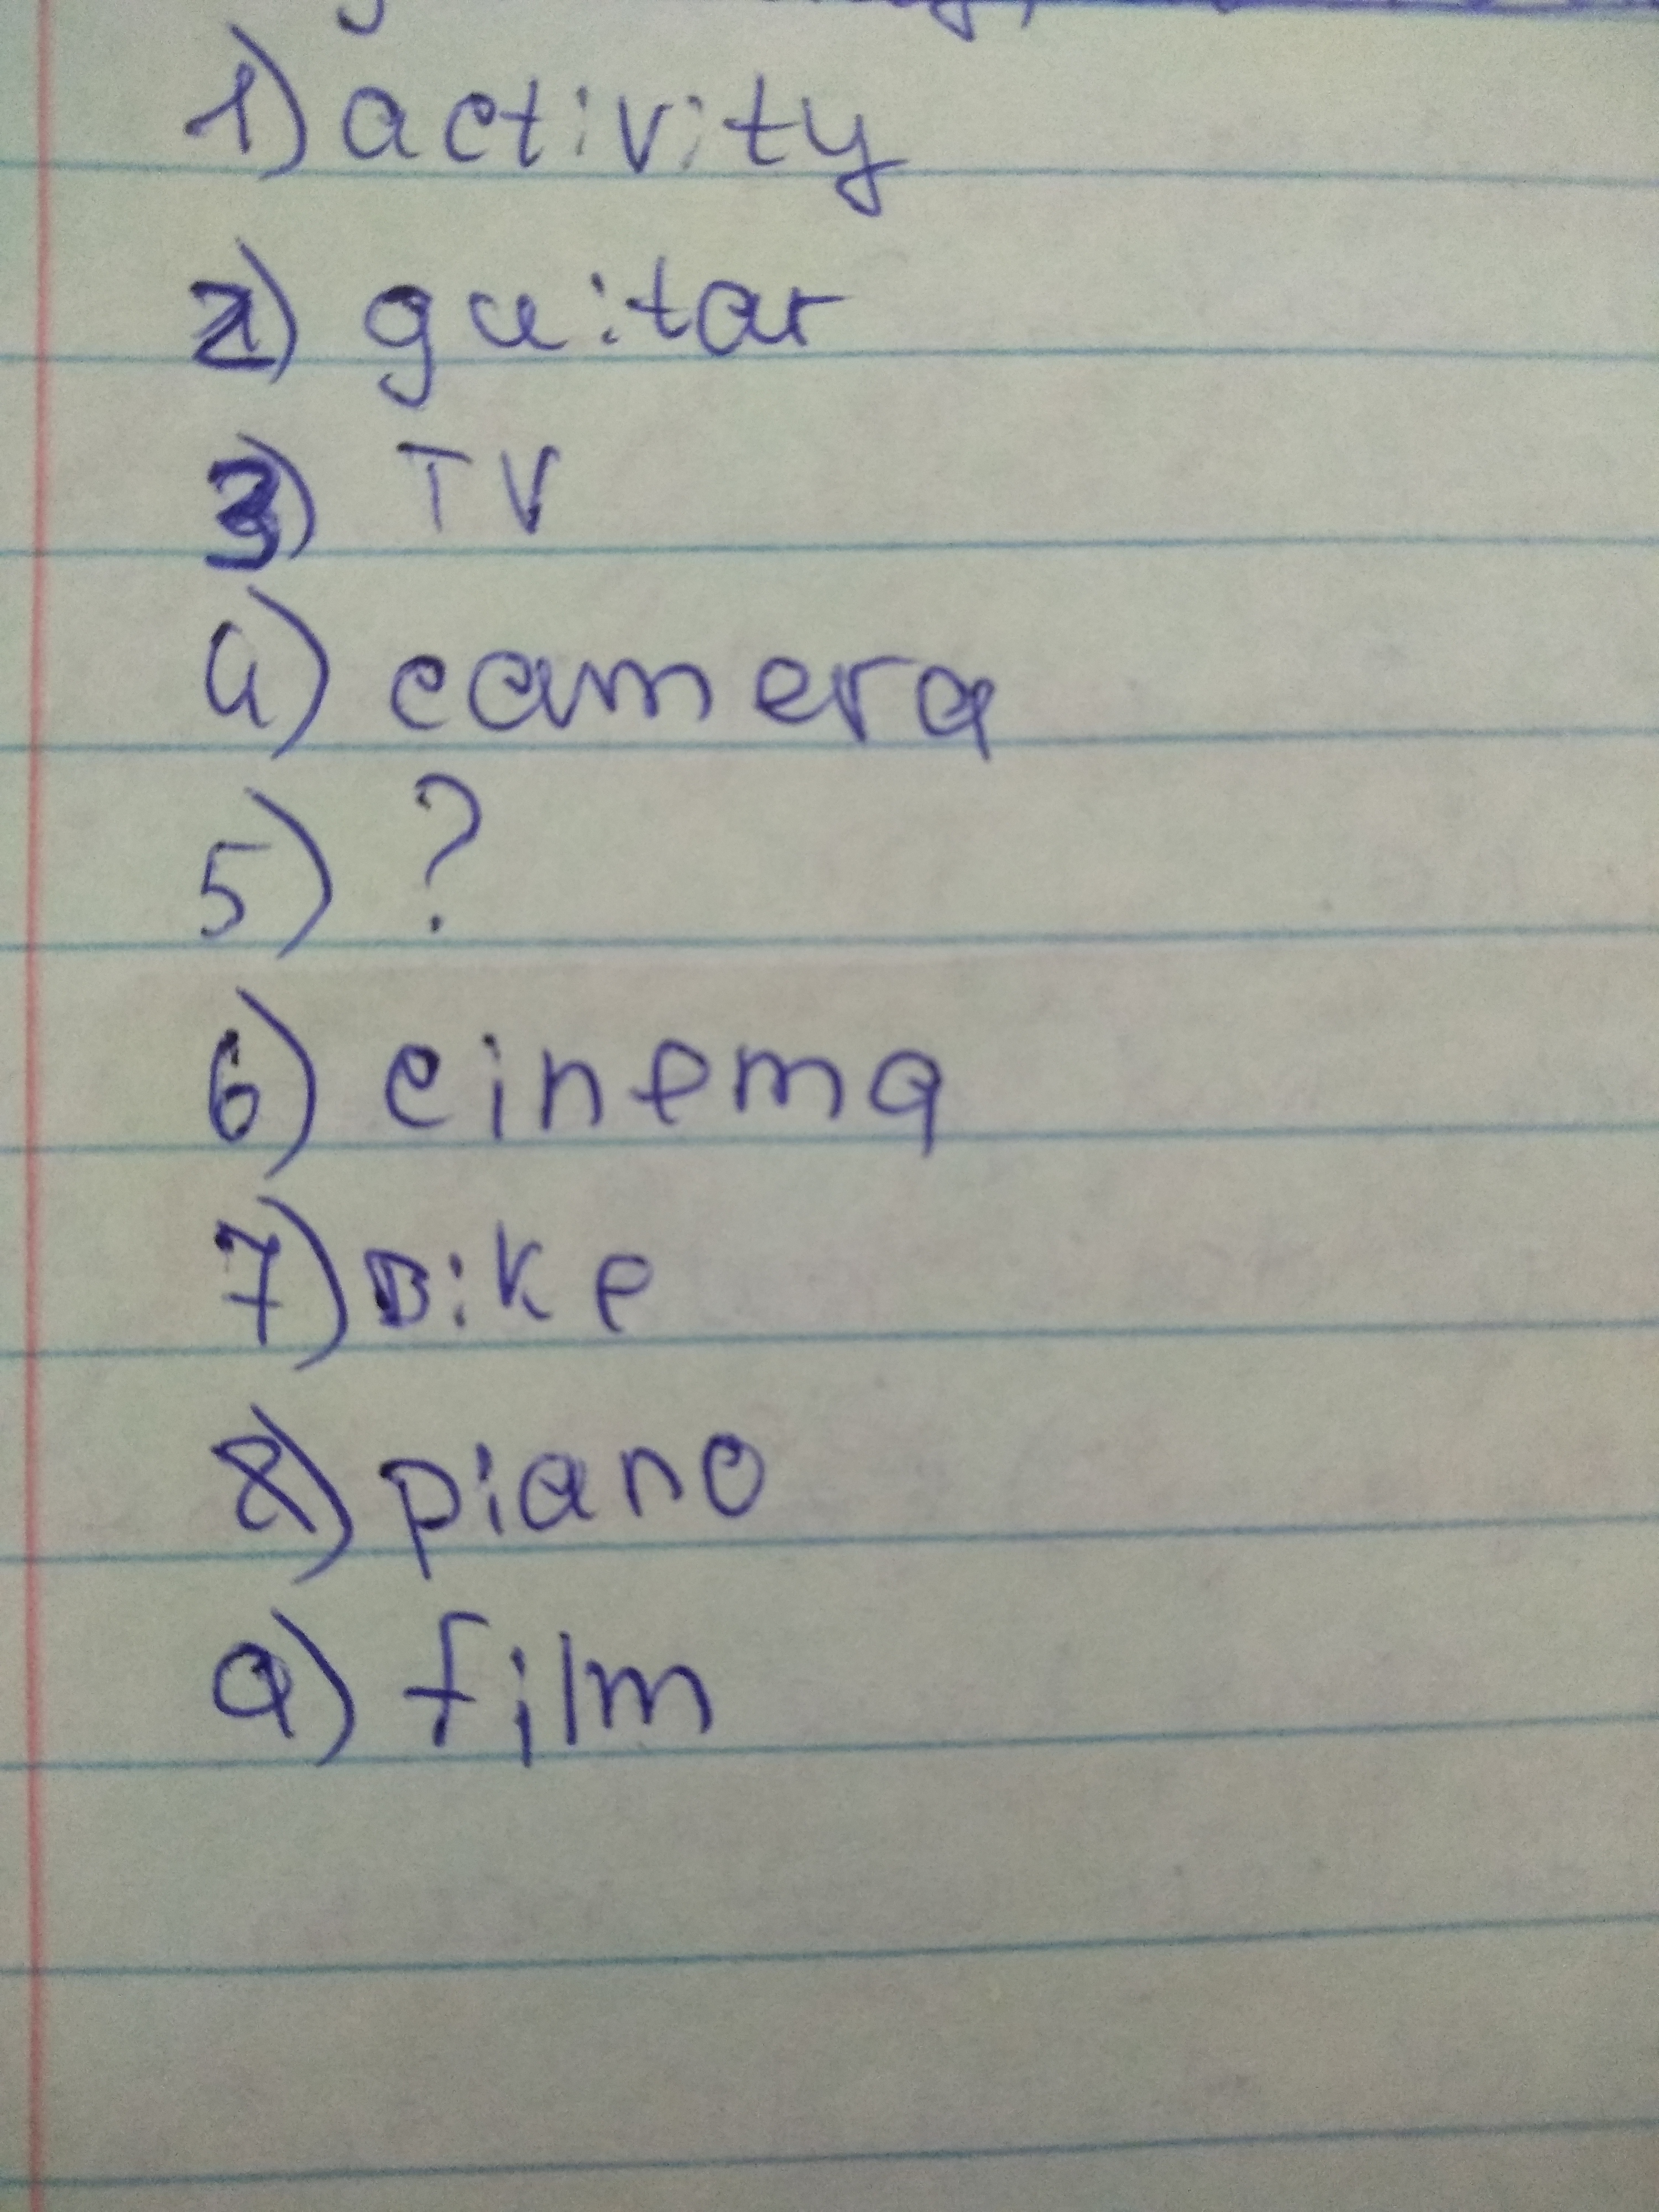 1) activity
2) guitar
3) TV
4) camera
5) ?
6) cinema
7) Bike
8) piano
9) film